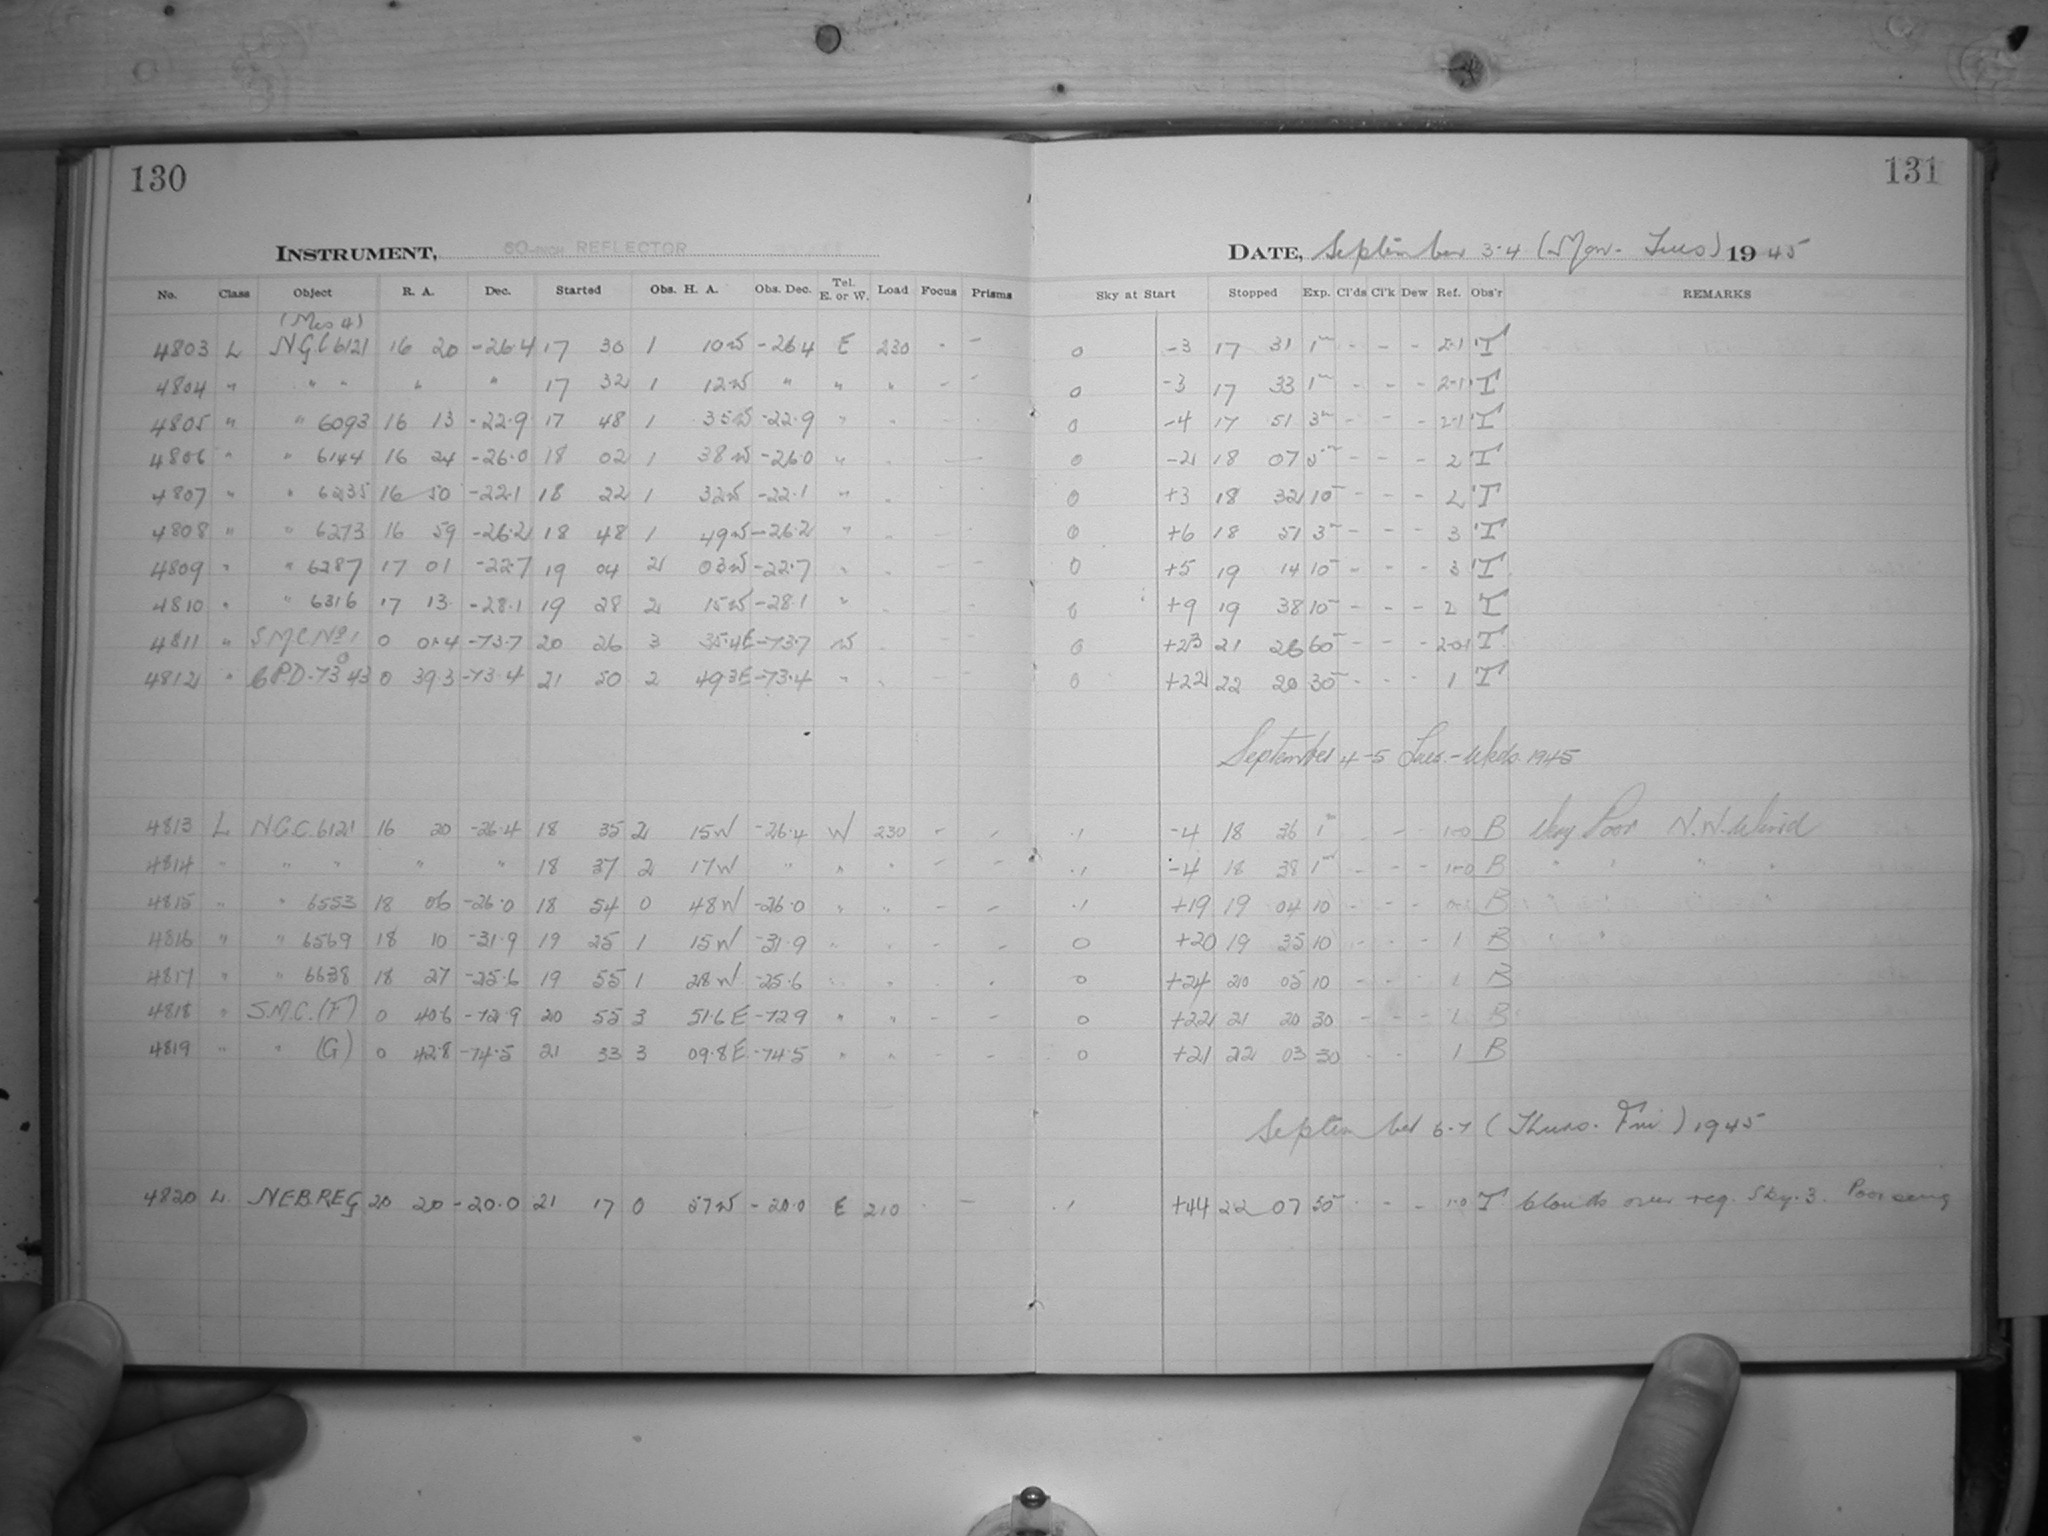 130
131
INSTRUMENT, 60-INCH REFLECTOR
DATE, September 3-4 (Mon - Tues) 1945
No. Class Object R. A. Dec. Started Obs. H. A. Obs. Dec. Tel. E. or W. Load Focus Prisms Sky at Start Stopped Exp. Cl'ds Cl'k Dew Ref. Obs'r REMARKS
(Mes 4)
4803 L NGC 6121 16 20 -26.4 17 30 1 10W -26.4 E 230 - - 0 -3 17 31 1m - - - 2-1 T
4804 " " " " " 17 32 1 12W " " " - - 0 -3 17 33 1m - - - 2-1 T
4805 " " 6093 16 13 -22.9 17 48 1 35W -22.9 " " 0 -4 17 51 3m - - - 2-1 T
4806 " " 6144 16 24 -26.0 18 02 1 38W -26.0 " " 0 -2 18 07 5m - - - 2 T
4807 " " 6235 16 50 -22.1 18 22 1 32W -22.1 " " 0 +3 18 32 10m - - - 2 T
4808 " " 6273 16 59 -26.2 18 48 1 49W -26.2 " " 0 +6 18 51 3m - - - 3 T
4809 " " 6287 17 01 -22.7 19 04 2 03W -22.7 " " 0 +5 19 14 10m - - - 3 T
4810 " " 6316 17 13 -28.1 19 28 2 15W -28.1 " " 0 +9 19 38 10m - - - 2 T
4811 " SMC No 1 0 01.4 -73.7 20 26 3 35.4E -73.7 W " 0 +23 21 26 60m - - - T
4812 " CPD-73°43 0 39.3 -73.4 21 50 2 49.3E -73.4 " " 0 +22 22 20 30m - - - 1 T
September 4-5 Tues.-Weds. 1945
4813 L N.G.C. 6121 16 20 -26.4 18 35 2 15W -26.4 W 230 - - .1 -4 18 36 1m - - 1-0 B Very Poor N.W. Wind
4814 " " " " " 18 37 2 17W " " " - - .1 -4 18 38 1m - - - 1-0 B " " " "
4815 " " 6553 18 06 -26.0 18 54 0 48W -26.0 " " - - .1 +19 19 04 10 - - - B " " " "
4816 " " 6569 18 10 -31.9 19 25 1 15W -31.9 " " - - 0 +20 19 35 10 - - - 1 B " "
4817 " " 6638 18 27 -25.6 19 55 1 28W -25.6 " " - - 0 +24 20 05 10 - - 1 B
4818 " S.M.C. (F) 0 40.6 -72.9 20 55 3 51.6E -72.9 " " - - 0 +22 21 20 30 - - - 1 B
4819 " " (G) 0 42.8 -74.5 21 33 3 09.8E -74.5 " " - - 0 +21 22 03 30 - - 1 B
September 6-7 (Thurs. Fri) 1945
4820 L NEB.REG 20 20 -20.0 21 17 0 57W -20.0 E 210 - - .1 +44 22 07 50m - - - 1-0 T Clouds over reg. Sky.3. Poor seeing